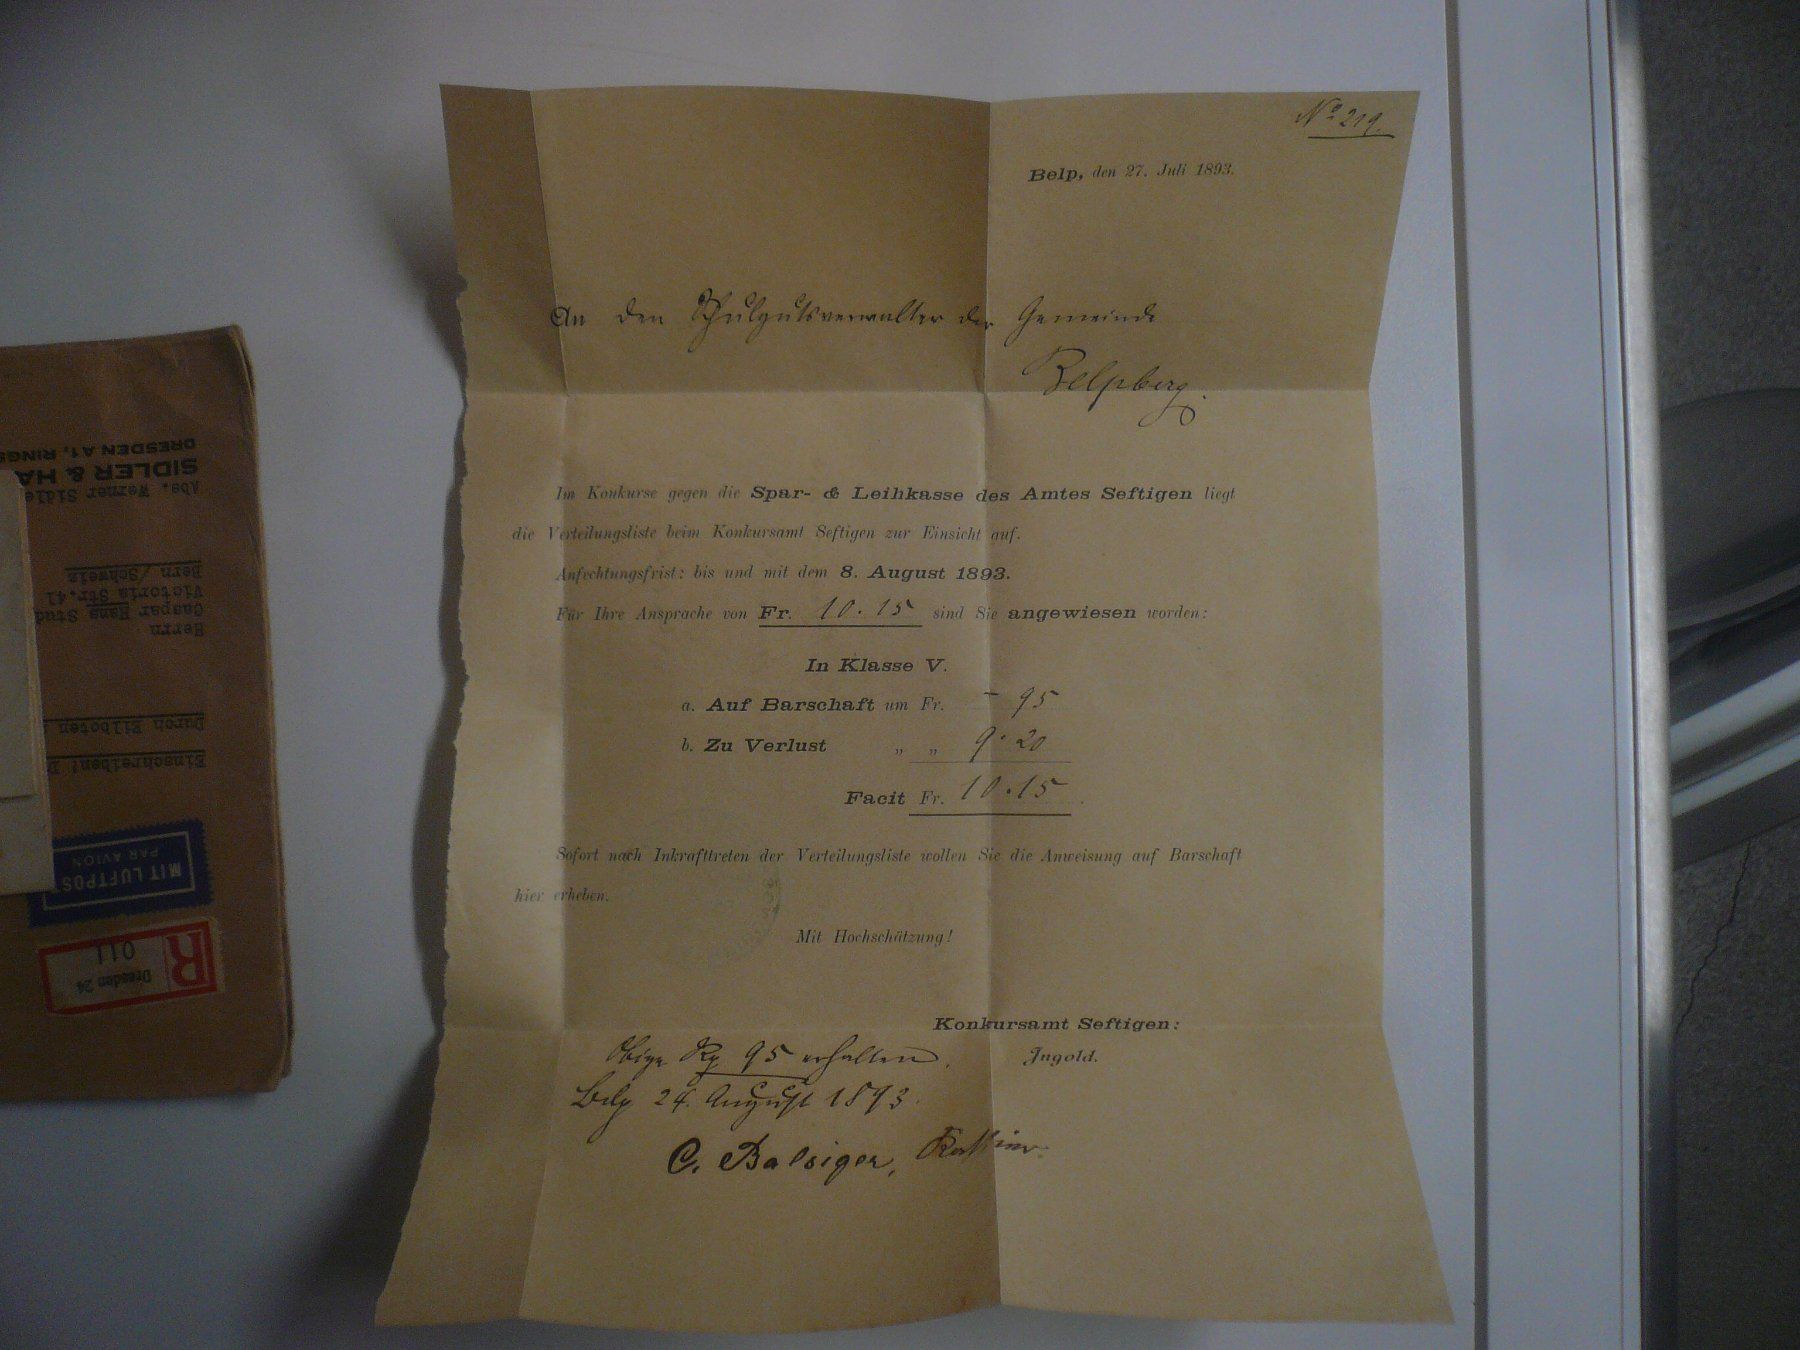 Nº 219.
Belp, den 27. Juli 1893.
An den Schulgutsverwalter der Gemeinde
Belpberg.
Im Konkurse gegen die Spar- & Leihkasse des Amtes Seftigen liegt
die Verteilungsliste beim Konkursamt Seftigen zur Einsicht auf.
Anfechtungsfrist: bis und mit dem 8. August 1893.
Für Ihre Ansprache von Fr. 10.15 sind Sie angewiesen worden:
In Klasse V.
a. Auf Barschaft um Fr. – 95
b. Zu Verlust „ „ 9.20
Facit Fr. 10.15
Sofort nach Inkrafttreten der Verteilungsliste wollen Sie die Anweisung auf Barschaft
hier erheben.
Mit Hochschätzung!
Konkursamt Seftigen:
Jngold.
Obige Rp 95 erhalten.
Belp 24. August 1893.
C. Balsiger,
DRESDEN A1, RING
SIDLER & HA
Abs. Werner Sidle
Herrn
Caspar Hans Stud
Victoria Str. 41
Bern /Schweiz
Durch Eilboten
Einschreiben!
MIT LUFTPOST
PAR AVION
R
Dresden 24
011